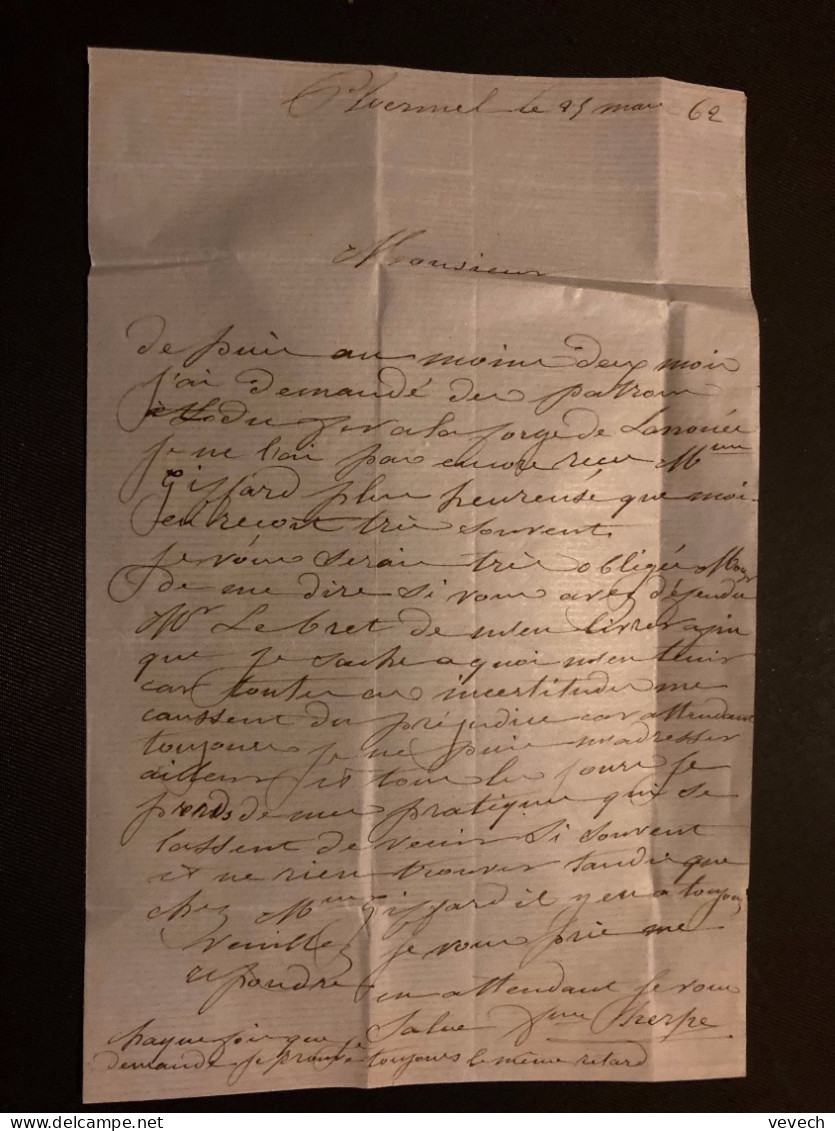 Ploermel le 25 mars 62
Monsieur
de puis au moins deux mois
j'ai demandé des patrons
du fer a la forge de Lanouée
je ne l'ai pas encore reçu Mme
Giffard plus heureuse que moi
en reçoit très souvent.
je vous serais très obligée Mons
de me dire si vous avez défendu
Mr Le bret de m'en livrer afin
que je sache a quoi m'en tenir
car toutes ces incertitudes me
caussent du préjudice car attendant
toujours je ne puis m'adresser
ailleurs et tous les jours je
perds de mes pratiques qui se
lassent de venir si souvent
et ne rien trouver tandis que
chez Mme Giffard il y en a toujours
Veuillez je vous prie me
repondre
en attendant je vous
Salue fme Sherpe
chaque fois que je
demande je trouve toujours le même retard
vevech